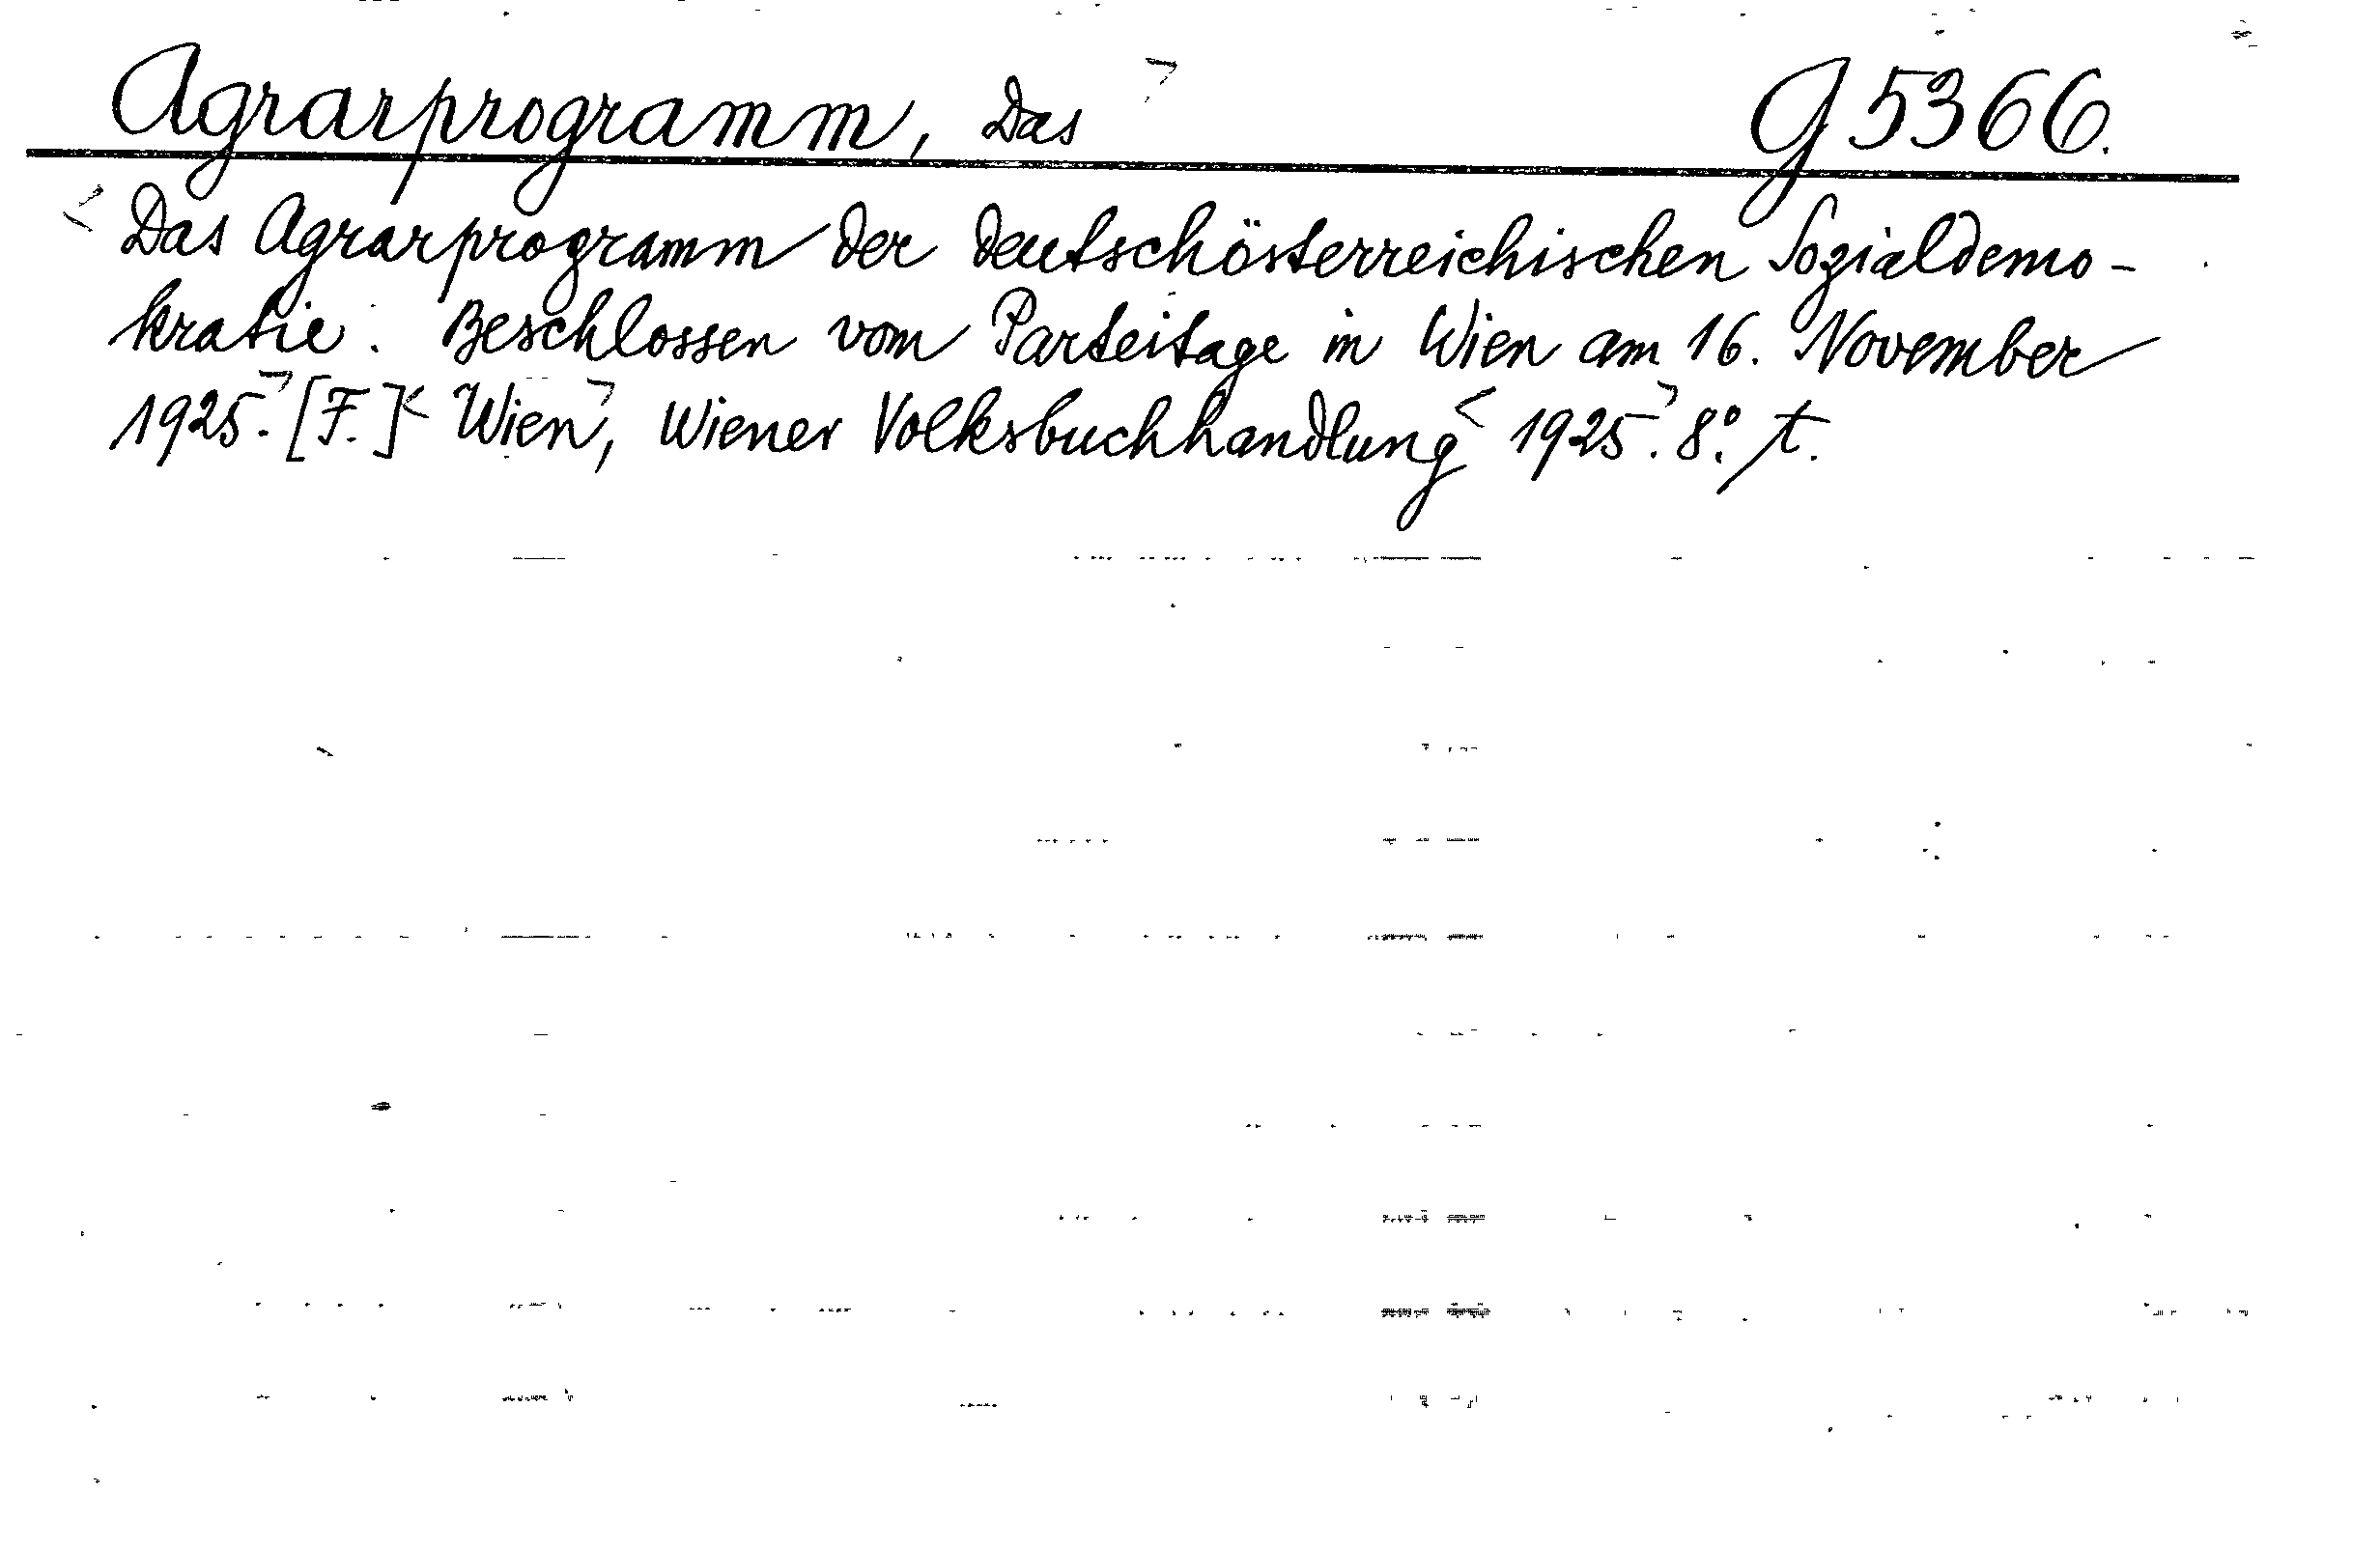 Agrarprogramm, Das G 5366.
Das Agrarprogramm der deutschösterreichischen Sozialdemo-
kratie. Beschlossen vom Parteitage in Wien am 16. November
1925. [F.] Wien, Wiener Volksbuchhandlung 1925. 8.° t.